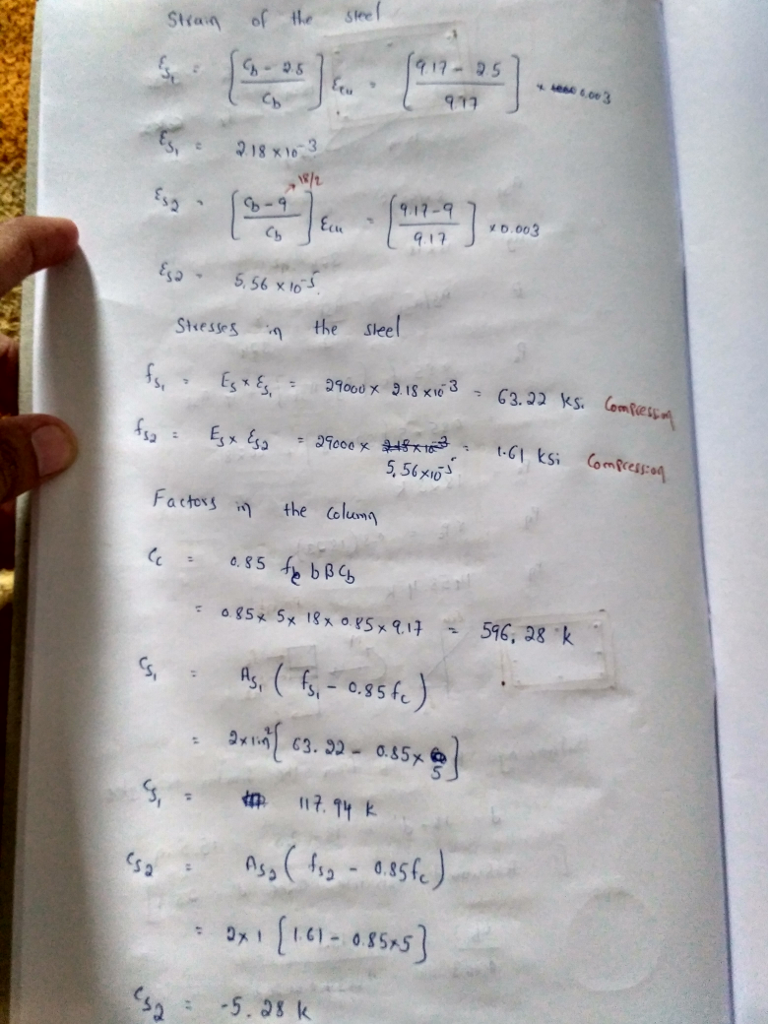 Strain of the steel
εs₁ = [(Cb - 2.5)/Cb] εcu = [(9.17 - 2.5)/9.17] × 0.003
εs₁ = 2.18 × 10⁻³
18/2
εs2 = [(Cb - 9)/Cb] εcu = [(9.17-9)/9.17] × 0.003
εs2 = 5.56 × 10⁻⁵
Stresses in the steel
fs₁ = Es × εs₁ = 29000 × 2.18 × 10⁻³ = 63.22 ksi Compression
fs2 = Es × εs2 = 29000 × 5.56×10⁻⁵ = 1.61 ksi Compression
Factors in the column
Cc = 0.85 fc b β Cb
= 0.85 × 5 × 18 × 0.85 × 9.17 = 596,28 k
Cs₁ = As₁ ( fs₁ - 0.85fc )
= 2×1in² [ 63.22 - 0.85 × 5 ]
Cs₁ = 117.94 k
Cs2 = As2 ( fs2 - 0.85fc )
= 2×1 [ 1.61 - 0.85×5 ]
Cs2 = -5.28 k